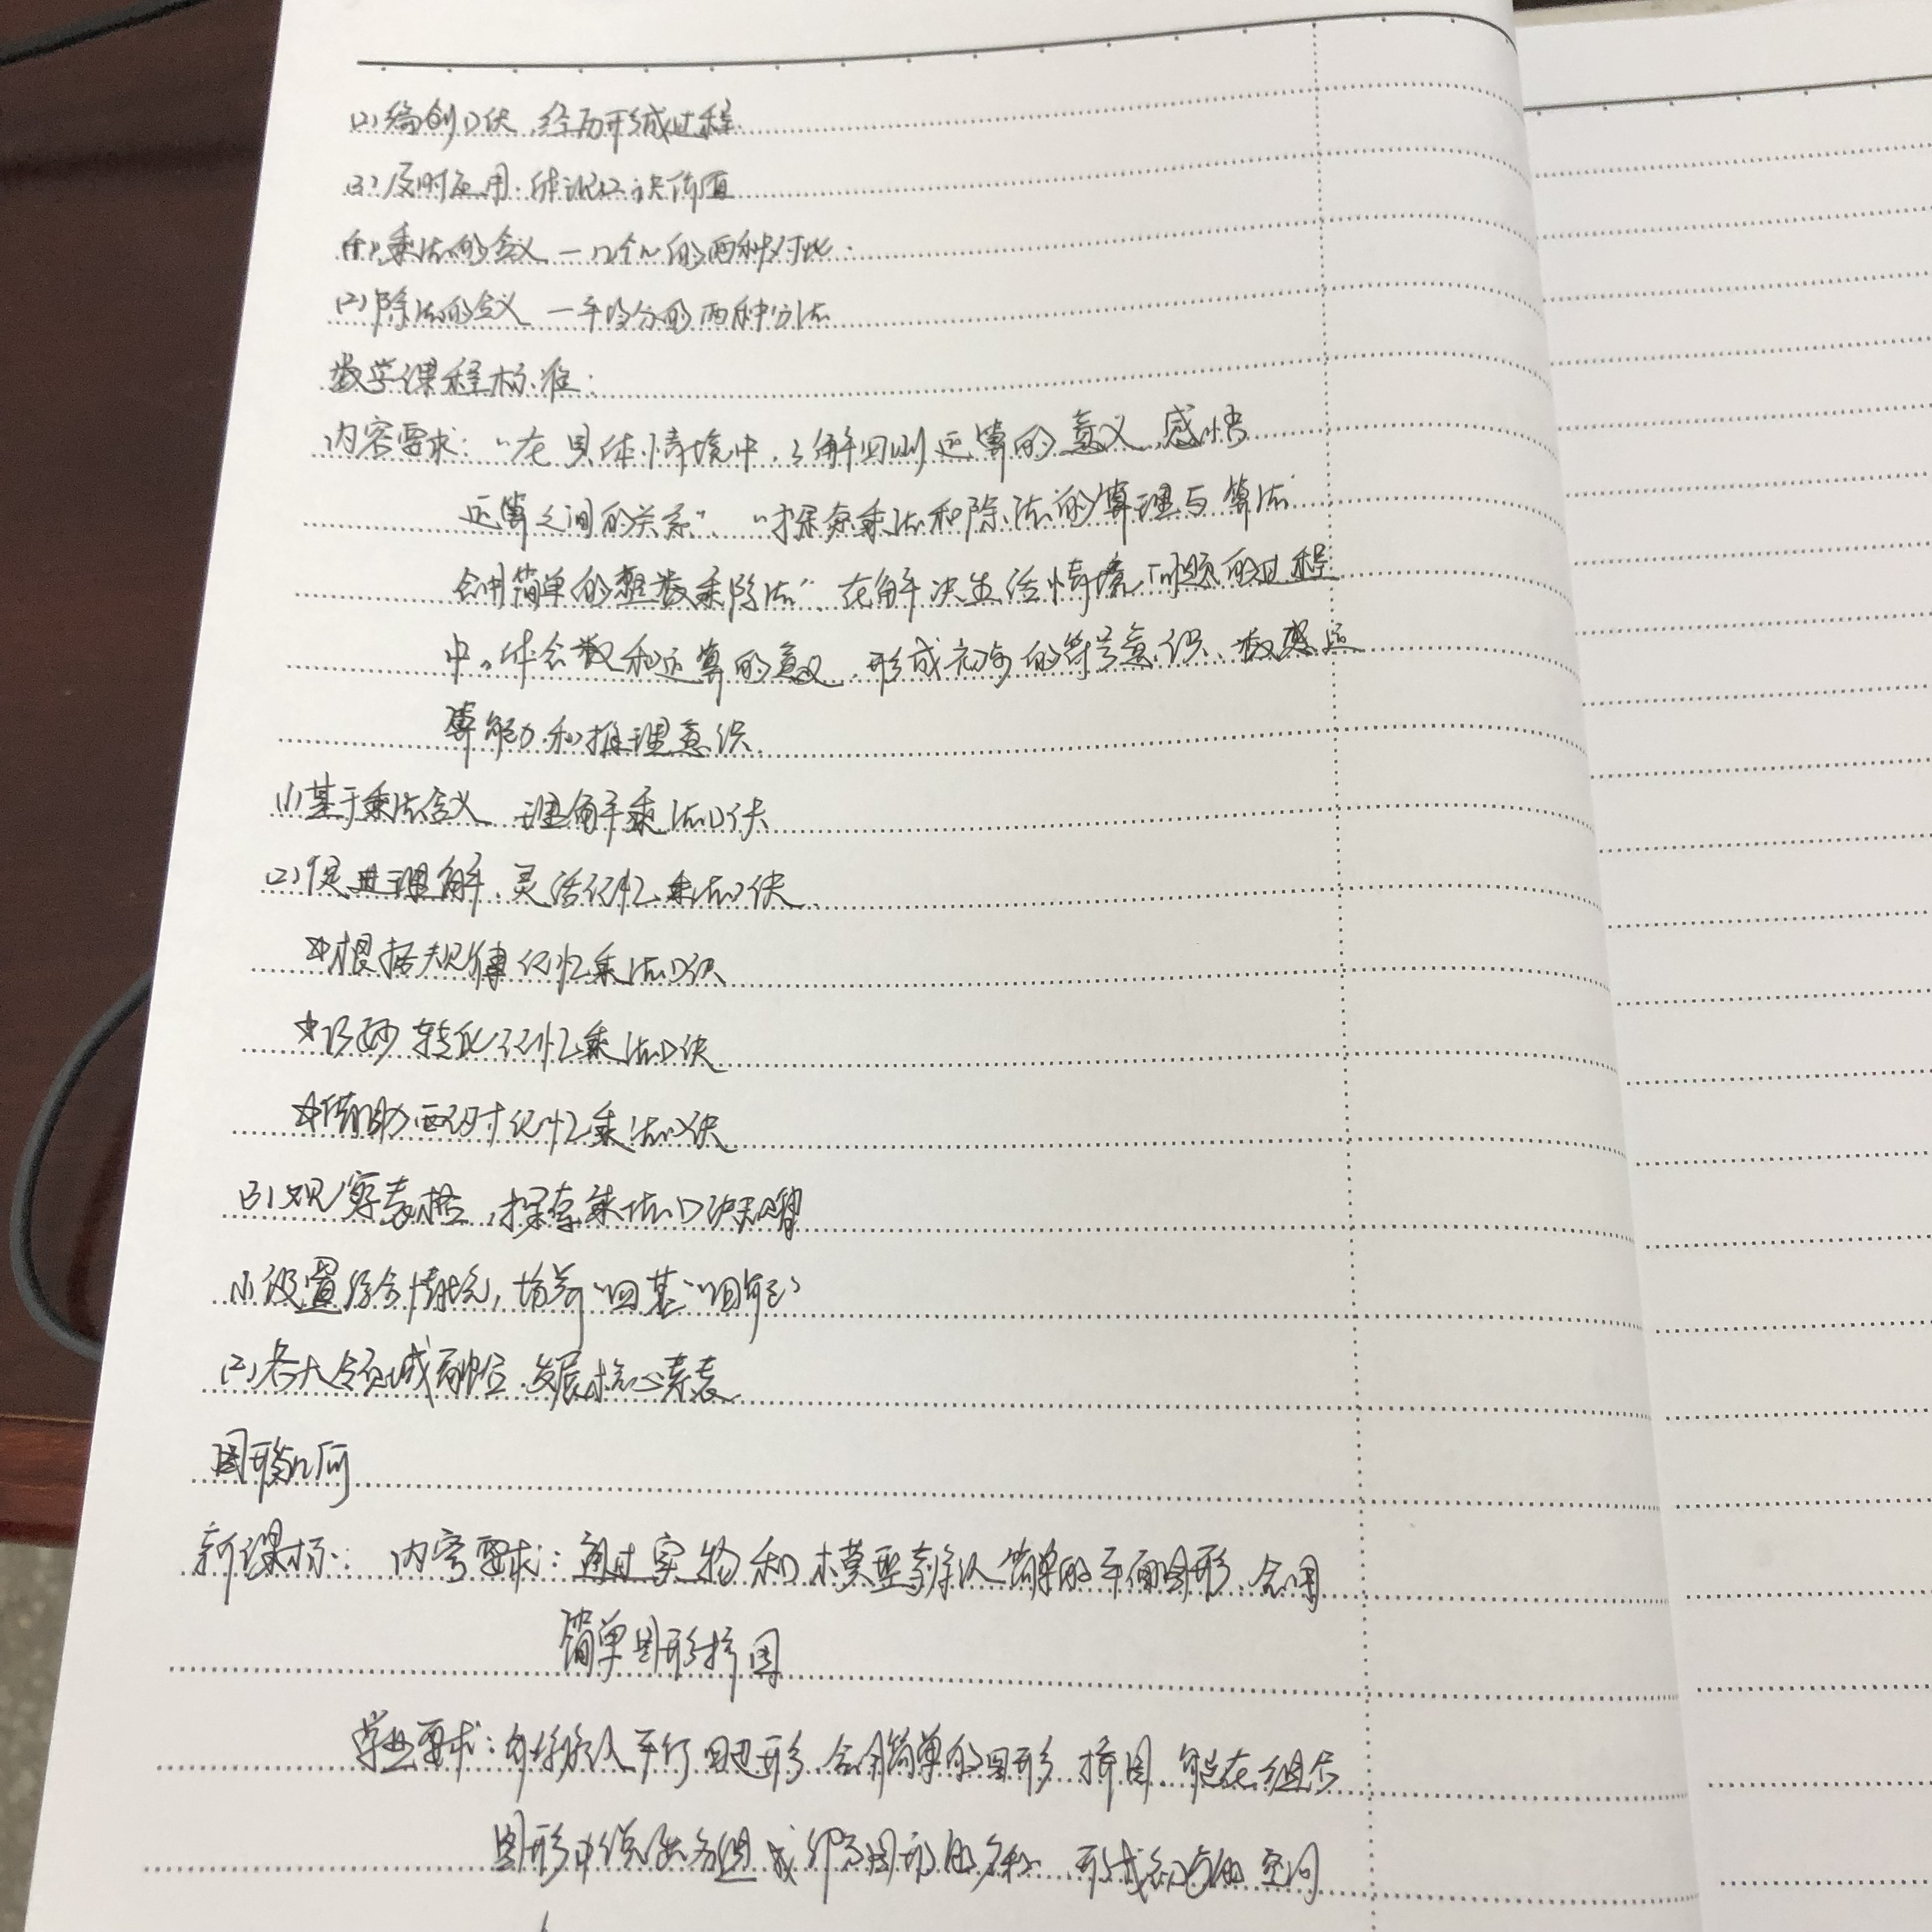 (2)编创口诀,经历形成过程
(3)及时应用:体现口诀价值
(1)乘法的含义 — 几个几的两种对比.
(2)除法的含义 — 平均分的两种分法
数学课程标准:
内容要求:“在具体情境中,了解四则运算的意义,感悟
运算之间的关系”、“探索乘法和除法的算理与算法
会用简单的整数乘除法”、在解决生活情境问题的过程
中,体会数和运算的意义,形成初步的符号意识、数感、运
算能力和推理意识.
(1)基于乘法含义 理解乘法口诀
(2)促进理解、灵活记忆乘法口诀.
☆根据规律记忆乘法口诀
☆巧妙转化记忆乘法口诀
☆借助配对记忆乘法口诀
(3)观察表格,探索乘法口诀奥秘
(1)设置综合情境,培养“四基”“四能”
(2)各大领域融合.发展核心素养.
图形几何
新课标: 内容要求:通过实物和模型辨认简单的平面图形、会用
简单图形拼图
学业要求:能辨认平行四边形.会用简单的图形拼图.能在组合
图形中说出各组成部分图形的名称.形成初步的空间